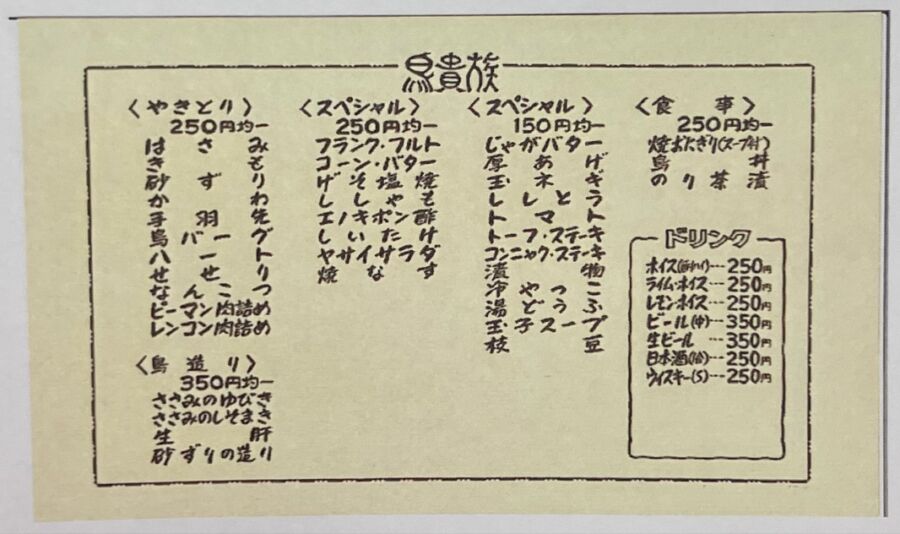 鳥貴族
〈やきとり〉
250円均一
はさみ
きも
砂ずり
かわ
手羽先
鳥バーグ
ハート
せせり
なんこつ
ピーマン肉詰め
レンコン肉詰め
〈鳥造り〉
350円均一
ささみのゆびき
ささみのしそまき
生肝
砂ずりの造り
〈スペシャル〉
250円均一
フランク・フルト
コーン・バター
げそ塩焼
ししゃも
エノキポン酢
しいたけ
ヤサイサラダ
焼なす
〈スペシャル〉
150円均一
じゃがバター
厚あげ
玉ネギ
ししとう
トマト
トーフ・ステーキ
コンニャク・ステーキ
漬物
冷やっこ
湯どうふ
玉子スープ
枝豆
〈食事〉
250円均一
焼おにぎり(スープ付)
鳥丼
のり茶漬
ドリンク
ホイス(酎ハイ)…250円
ライム・ホイス…250円
レモン・ホイス…250円
ビール(中)…350円
生ビール…350円
日本酒(1合)…250円
ウイスキー(S)…250円